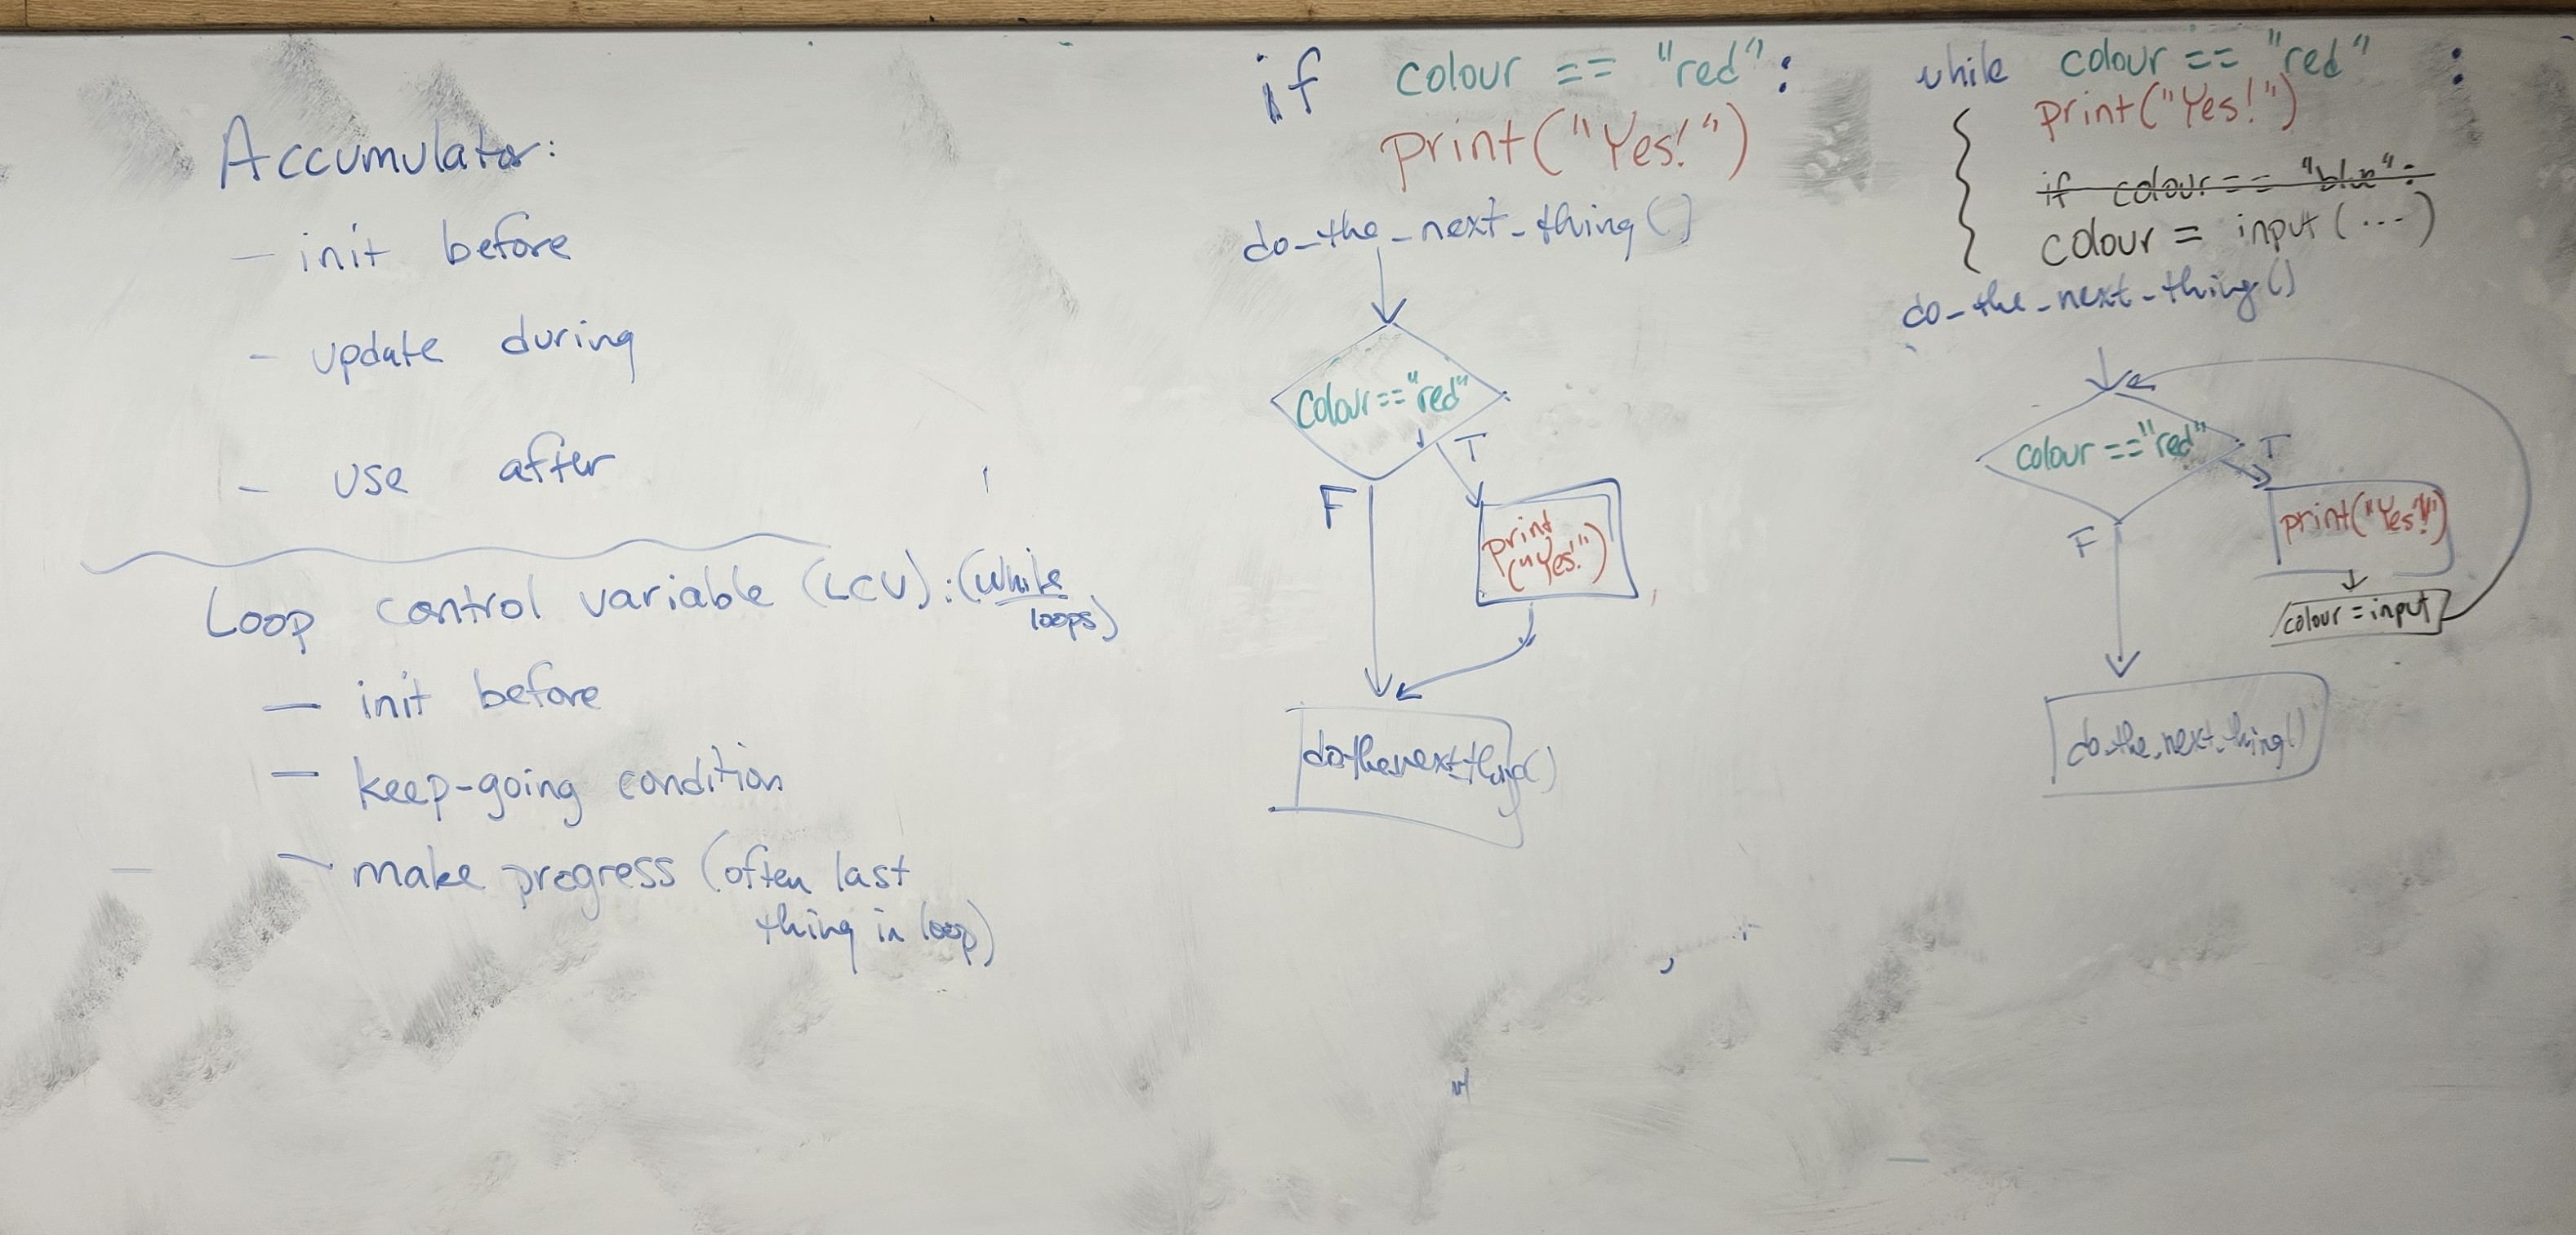 Accumulator:
- init before
- update during
- use after
Loop control variable (LCV): (while
loops)
- init before
- keep-going condition
- make progress (often last
thing in loop)
if colour == "red":
print("Yes!")
do_the_next_thing()
colour=="red"
T
F
print
("Yes!")
do_the_next_thing()
while colour == "red" :
print("Yes!")
if colour == "blue":
colour = input(...)
do_the_next_thing()
colour=="red"
T
F
print("Yes!")
colour = input
do_the_next_thing()